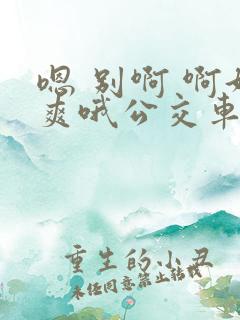 嗯 别啊 啊
爽哦公交车
重生的小丑
未经同意禁止转载